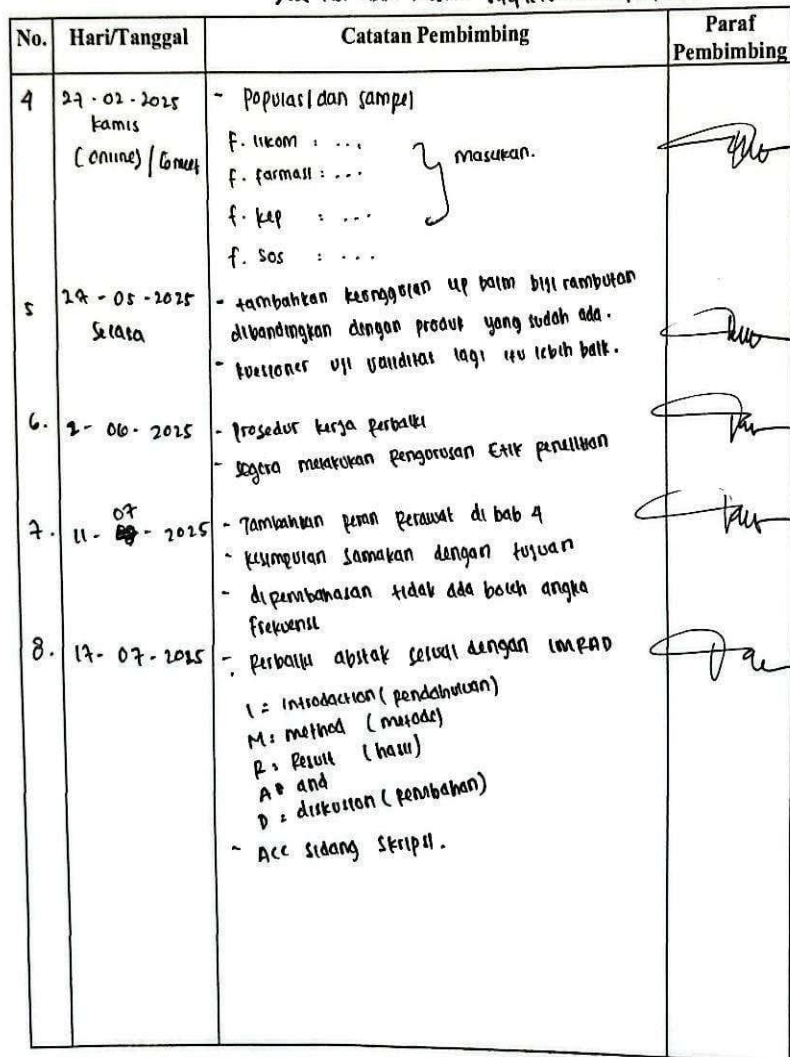 No. Hari/Tanggal Catatan Pembimbing Paraf Pembimbing
4 27-02-2025 - Populasi dan sampel
Kamis F. Ilkom : ...
(online) / F. farmasi : ... } masukan.
f. kep : ...
f. Sos : ...
5 27-05-2025 - tambahkan keunggulan lip balm biji rambutan
Selasa dibandingkan dengan produk yang sudah ada.
- kuesioner uji validitas lagi itu lebih baik.
6. 2-06-2025 - Prosedur kerja perbaiki
- segera melakukan pengurusan Etik penelitian
7. 11-07-2025 - Tambahkan peran perawat di bab 4
- kesimpulan samakan dengan tujuan
- di pembahasan tidak ada boleh angka
frekuensi
8. 17-07-2025 - Perbaiki abstak sesuai dengan IMRAD
I = Introdaction (pendahuluan)
M = method (metode)
R = Result (hasil)
A = and
D = diskusion (pembahan)
- Acc sidang skripsi.